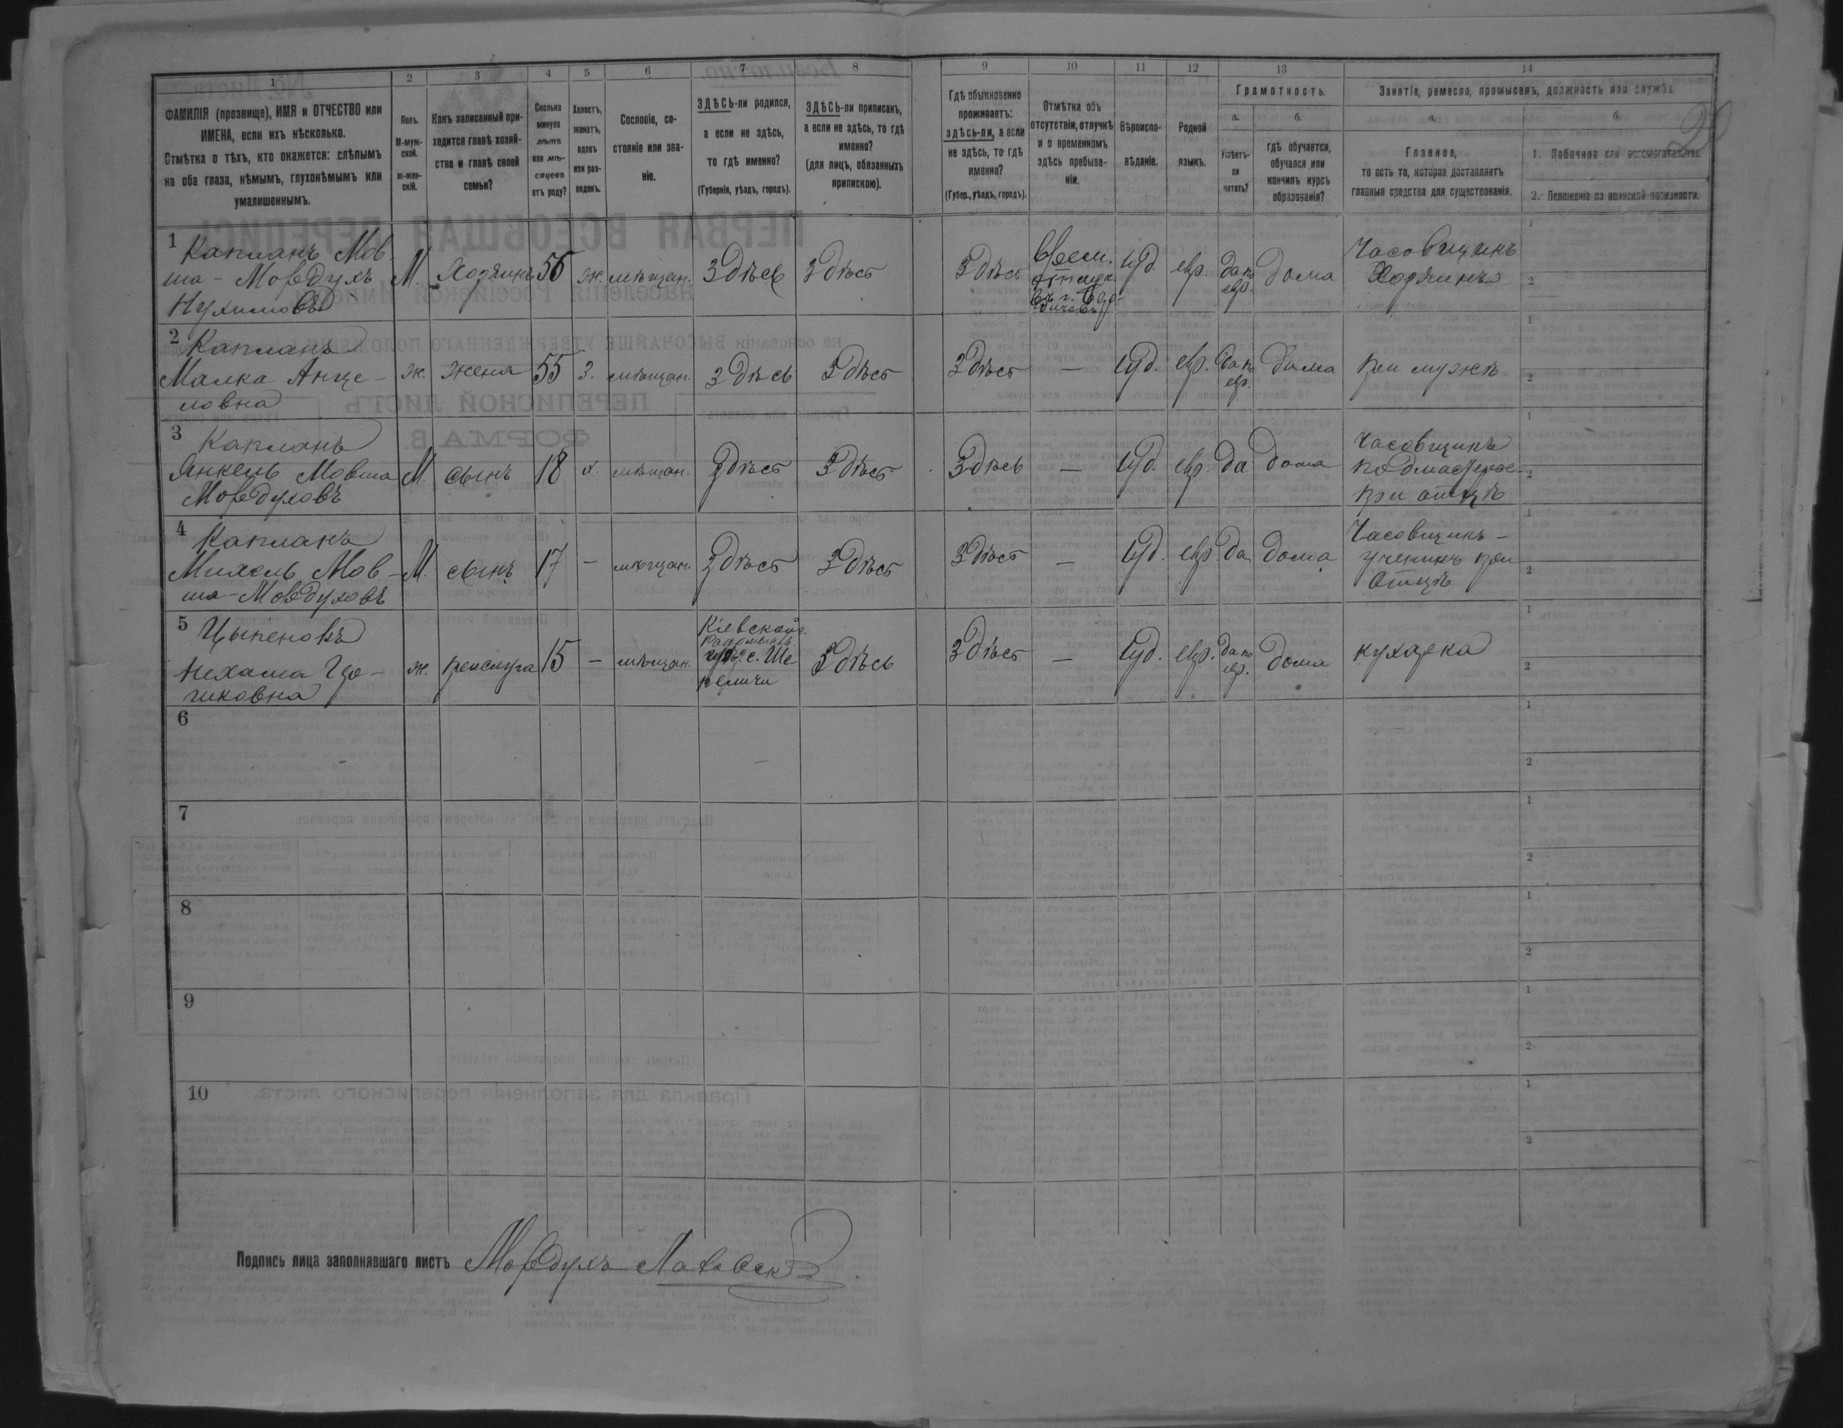 1
2
3
4
5
6
7
8
9
10
11
12
13
14
ФАМИЛІЯ (прозвище), ИМЯ и ОТЧЕСТВО или
ИМЕНА, если ихъ нѣсколько.
Отмѣтка о тѣхъ, кто окажется: слѣпымъ
на оба глаза, нѣмымъ, глухонѣмымъ или
умалишоннымъ.
Полъ.
М-муж-
ской.
ж-жен-
скій.
Какъ записанный при-
ходится главѣ хозяй-
ства и главѣ своей
семьи?
Сколько
минуло
лѣтъ
или мѣ-
сяцевъ
отъ роду?
Холостъ,
женатъ,
вдовъ
или раз-
веденъ.
Сословіе, со-
стояніе или зва-
ніе.
ЗДѢСЬ-ли родился,
а если не здѣсь,
то гдѣ именно?
(Губернія, уѣздъ, городъ).
ЗДѢСЬ-ли приписанъ,
а если не здѣсь, то гдѣ
именно?
(для лицъ, обязанныхъ
припискою).
Гдѣ обыкновенно
проживаетъ:
здѣсь-ли, а если
не здѣсь, то гдѣ
именно?
(Губер., уѣздъ, городъ).
Отмѣтка объ
отсутствіи, отлучкѣ
и о временномъ
здѣсь пребыва-
ніи.
Вѣроиспо-
вѣданіе.
Родной
языкъ.
Грамотность.
а.
Умѣетъ-
ли
читать?
б.
гдѣ обучается,
обучался или
кончилъ курсъ
образованія?
Занятіе, ремесло, промыселъ, должность или служба.
а.
Главное,
то есть то, которое доставляетъ
главныя средства для существованія.
б.
1. Побочное или вспомогательное.
2. Положеніе по воинской повинности.
1
Капланъ Мов-
ша-Мордухъ
Нухимовъ
М.
Хозяинъ
56
ж.
мѣщан.
Здѣсь
Здѣсь
Здѣсь
Врем.
отлуч.
въ г. Бер-
дичевъ
Іуд.
евр.
да по
евр.
Дома
Часовщикъ
Хозяинъ
1
2
2
Капланъ
Малка Анце-
ловна
ж.
жена
55
з.
мѣщан.
Здѣсь
Здѣсь
Здѣсь
—
Іуд.
евр.
да по
евр.
дома
при мужѣ
1
2
3
Капланъ
Янкель Мовша
Мордуховъ
М.
сынъ
18
х.
мѣщан.
Здѣсь
Здѣсь
Здѣсь
—
Іуд.
евр.
да
дома
Часовщикъ
подмастерье
при отцѣ
1
2
4
Капланъ
Михель Мов-
ша-Мордуховъ
М.
сынъ
17
—
мѣщан.
Здѣсь
Здѣсь
Здѣсь
—
Іуд.
евр
да
дома
Часовщикъ-
ученикъ при
отцѣ
1
2
5
Нехама
ж.
прислуга
15
—
мѣщан.
Кіевской г.
Здѣсь
Здѣсь
—
Іуд.
евр.
да по
евр.
дома
кухарка
1
2
6
1
2
7
1
2
8
1
2
9
1
2
10
1
2
Подпись лица заполнявшаго листъ Мордухъ